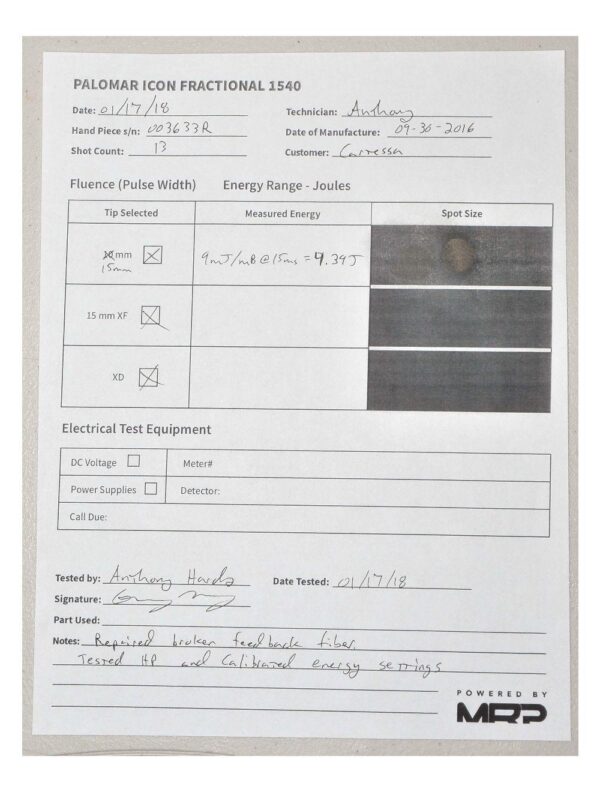 PALOMAR ICON FRACTIONAL 1540
Date: 01/17/18 Technician: Anthony
Hand Piece s/n: 003633R Date of Manufacture: 09-30-2016
Shot Count: 13 Customer: Carressa
Fluence (Pulse Width) Energy Range - Joules
Tip Selected Measured Energy Spot Size
mm 9mJ/mB @ 15ms = 9.39J
15mm
15 mm XF
XD
Electrical Test Equipment
DC Voltage Meter#
Power Supplies Detector:
Call Due:
Tested by: Anthony Date Tested: 01/17/18
Signature:
Part Used:
Notes: Repaired broken feedback fiber.
Tested HP and Calibrated energy settings
POWERED BY
MRP